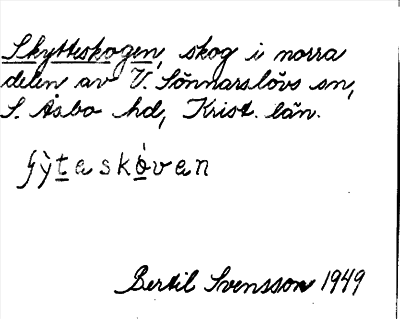 Skytteskogen, skog i norra
delen av V. Sönnarslövs sn,
S. Åsbo hd, Krist. län.
ʃỳt̲askò̲van
Bertil Svensson 1949